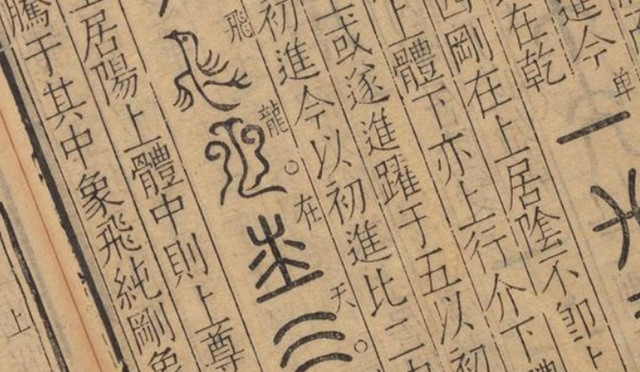 進今
在乾
四剛在上居陰不卽上
上體下亦上行介下體
上或遂進躍于五以初
初進今以初進比二
飛龍在天
居陽上體中則上尊
騰于其中象飛純剛象
上